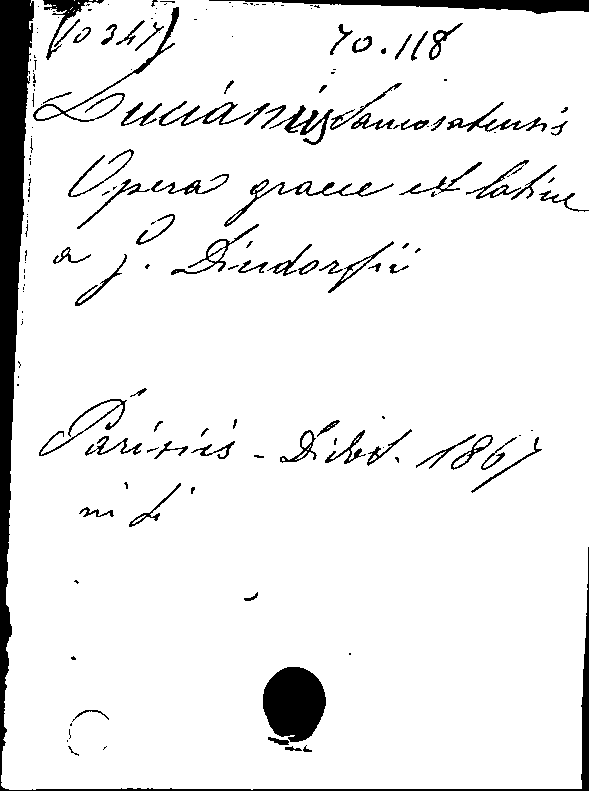 (10347) 70.118
Lucianus Samosatensis
Opera graece et latine
a G. Dindorfii
Parisiis - Didot. 1867